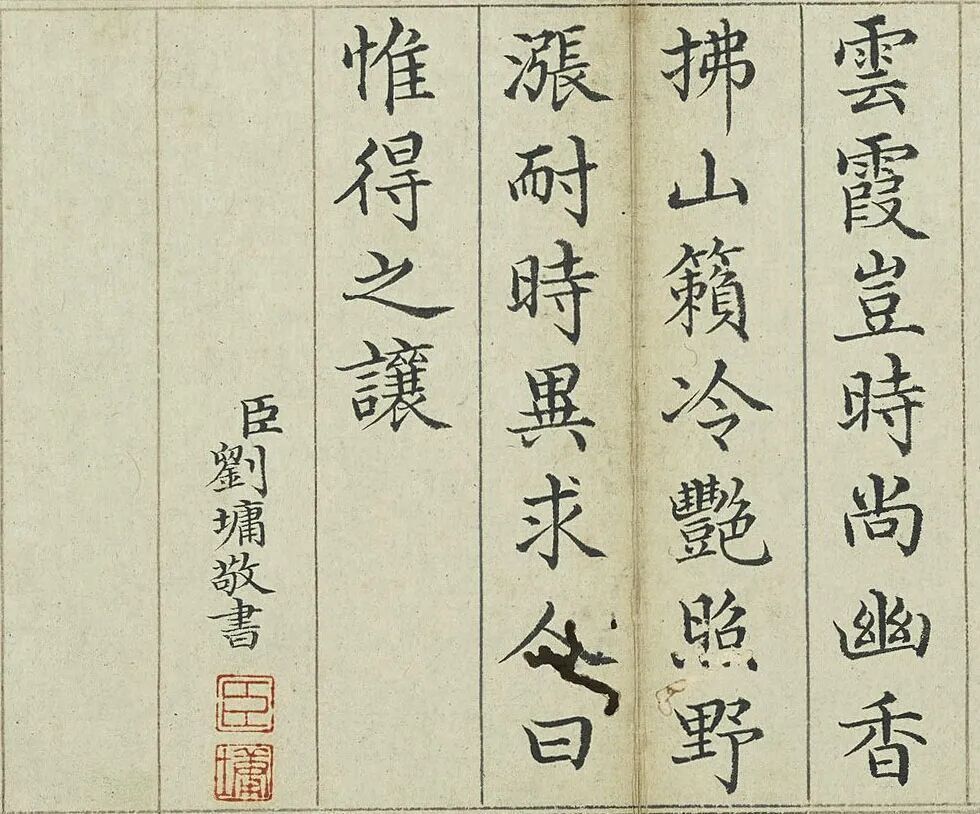 雲霞豈時尚幽香
拂山籟冷艷照野
漲耐時異求曰
惟得之讓
臣劉墉敬書
臣
墉